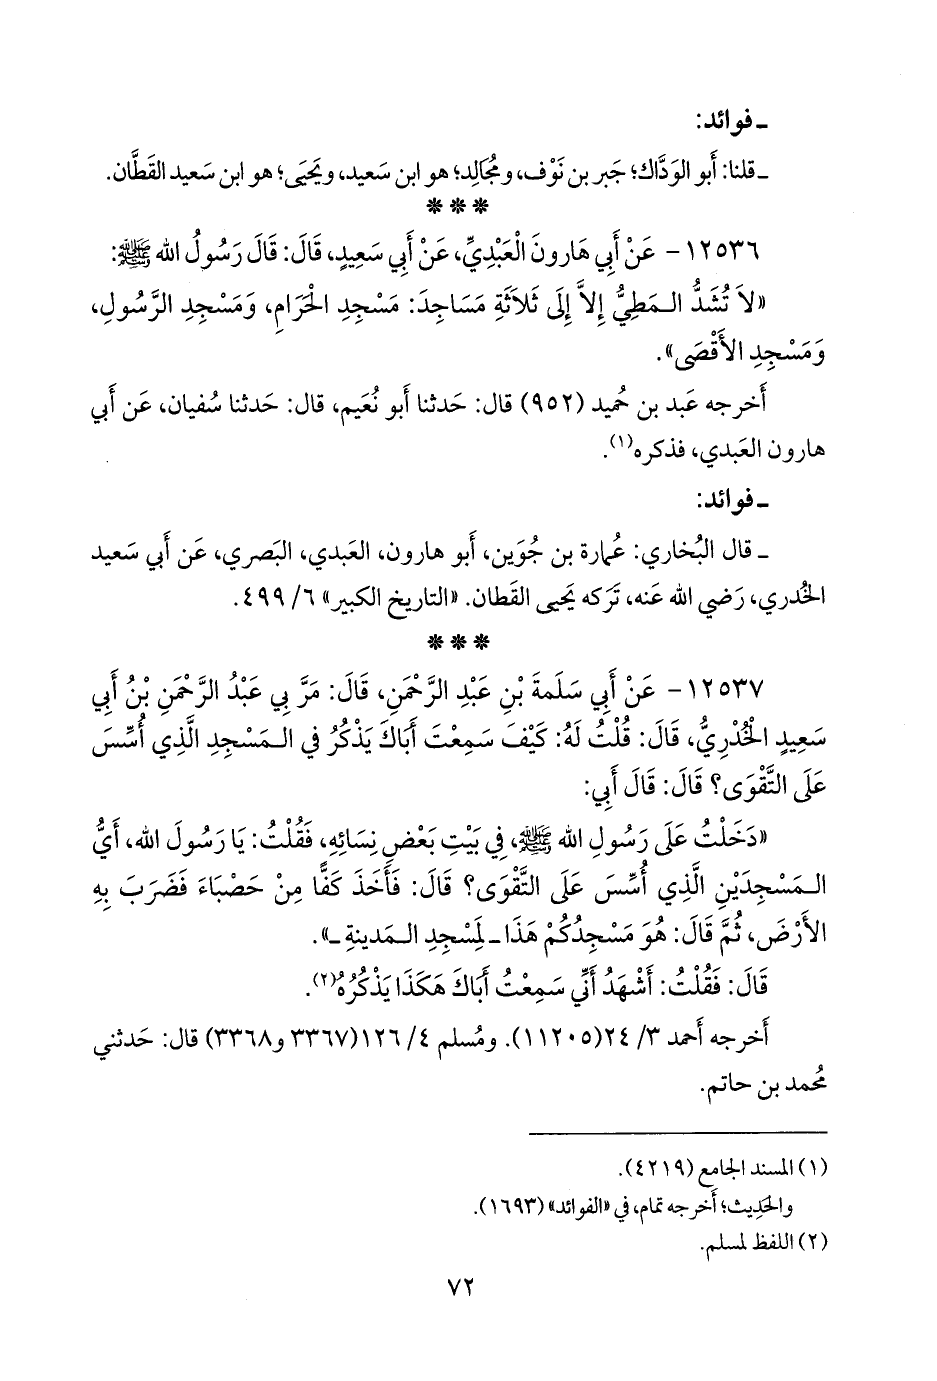 ـ فوائد:
ـ قلنا: أَبو الوَدَّاك؛ جَبر بن نَوْف، ومُجالِد؛ هو ابن سَعيد، ويَحيَى؛ هو ابن سَعيد القَطَّان.
* * *
١٢٥٣٦- عَنْ أَبِي هَارونَ الْعَبْدِيِّ، عَنْ أَبِي سَعِيدٍ، قَالَ: قَالَ رَسُولُ الله ﷺ:
«لاَ تُشَدُّ الـمَطِيُّ إِلاَّ إِلَى ثَلاَثَةِ مَسَاجِدَ: مَسْجِدِ الْحَرَامِ، وَمَسْجِدِ الرَّسُولِ،
وَمَسْجِدِ الأَقْصَى».
أَخرجه عَبد بن حُميد (٩٥٢) قال: حَدثنا أَبو نُعَيم، قال: حَدثنا سُفيان، عَن أَبي
هارون العَبدي، فذكره(١).
ـ فوائد:
ـ قال البُخاري: عُمارة بن جُوَين، أَبو هارون، العَبدي، البَصري، عَن أَبي سَعيد
الخُدري، رَضي الله عَنه، تَركه يَحيى القَطان. «التاريخ الكبير» ٦/ ٤٩٩.
* * *
١٢٥٣٧- عَنْ أَبِي سَلَمةَ بْنِ عَبْدِ الرَّحْمَنِ، قَالَ: مَرَّ بِي عَبْدُ الرَّحْمَنِ بْنُ أَبِي
سَعِيدٍ الْخُدْرِيُّ، قَالَ: قُلْتُ لَهُ: كَيْفَ سَمِعْتَ أَبَاكَ يَذْكُرُ فِي الـمَسْجِدِ الَّذِي أُسِّسَ
عَلَى التَّقْوَى؟ قَالَ: قَالَ أَبِي:
«دَخَلْتُ عَلَى رَسُولِ الله ﷺ، فِي بَيْتِ بَعْضِ نِسَائِهِ، فَقُلْتُ: يَا رَسُولَ الله، أَيُّ
الـمَسْجِدَيْنِ الَّذِي أُسِّسَ عَلَى التَّقْوَى؟ قَالَ: فَأَخَذَ كَفًّا مِنْ حَصْبَاءَ فَضَرَبَ بِهِ
الأَرْضَ، ثُمَّ قَالَ: هُوَ مَسْجِدُكُمْ هَذَا ـ لِمَسْجِدِ الـمَدينةِ ـ».
قَالَ: فَقُلْتُ: أَشْهَدُ أَنِّي سَمِعْتُ أَبَاكَ هَكَذَا يَذْكُرُهُ(٢).
أَخرجه أَحمد ٣/ ٢٤(١١٢٠٥). ومُسلم ٤/ ١٢٦(٣٣٦٧ و٣٣٦٨) قال: حَدثني
مُحمد بن حاتم.
(١) المسند الجامع (٤٢١٩).
والحَدِيث؛ أَخرجه تمام، في «الفوائد» (١٦٩٣).
(٢) اللفظ لمسلم.
٧٢